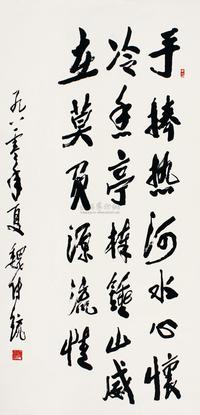 手捧热河水心怀
冷意亭棒锤山威
在莫负源流情
一九八〇年夏 魏传统